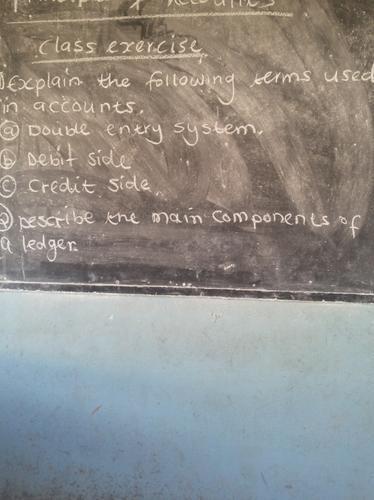 Principle of Accounts
Class exercise
1) Explain the following terms used
in accounts.
(a) Double entry system.
(b) Debit side
(c) Credit side.
(2) Describe the main components of
a ledger.